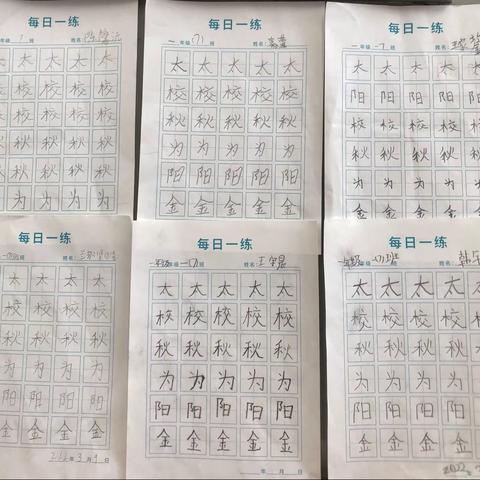 每日一练
年级 1 班 姓名:
太 太 太 太
校 校 校 校
秋 秋 秋 秋
为 为 为 为
阳 阳 阳 阳
秋 秋 秋 秋
为 为 为 为
每日一练
一年级 (7) 班 姓名:
太 太 太 太 太
校 校 校 校 校
秋 秋 秋 秋 秋
为 为 为 为 为
阳 阳 阳 阳 阳
金 金 金 金 金
每日一练
一年级 班 姓名:
太 太 太 太 太
阳 阳 阳 阳 阳
校 校 校 校 校
秋 秋 秋 秋 秋
为 为 为 为 为
阳 阳 阳 阳 阳
金 金 金 金 金
每日一练
班 姓名:
太 太 太 太
校 校 校 校
秋 秋 秋 秋
为 为 为 为
阳 阳 阳 阳
金 金 金 金
每日一练
年级 班 姓名:
太 太 太 太 太
校 校 校 校 校
秋 秋 秋 秋 秋
为 为 为 为 为
阳 阳 阳 阳 阳
金 金 金 金 金
年 月 日
每日一练
年级 班 姓名:
太 太 太 太 太
校 校 校 校 校
秋 秋 秋 秋
为 为 为 为
阳 阳 阳 阳
金 金 金 金
2022.